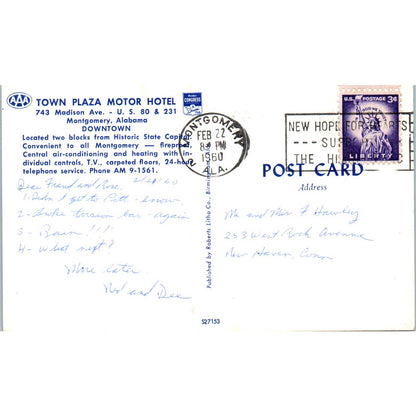 AAA
TOWN PLAZA MOTOR HOTEL
743 Madison Ave. - U. S. 80 & 231
Montgomery, Alabama
DOWNTOWN
Located two blocks from Historic State Capitol.
Convenient to all Montgomery — fireproof
Central air-conditioning and heating with in-
dividual controls, T.V., carpeted floors, 24-hour
telephone service. Phone AM 9-1561.
CONGRESS
MONTGOMERY
FEB 22
PM
1960
ALA.
NEW HOPE FOR HEARTS
THE
U.S. POSTAGE 3¢
LIBERTY
POST CARD
Address
Published by Roberts Litho Co., Birmingham
Dear Frank and Rose, 2/21/60
1- Didn't get to - snow
2- Broke torsion bar - again
3- Rain!!!
4- What next?
More later
Ned and Dee
Mr and Mrs F Hawley
253 West Rock Avenue
New Haven, Conn
S27153